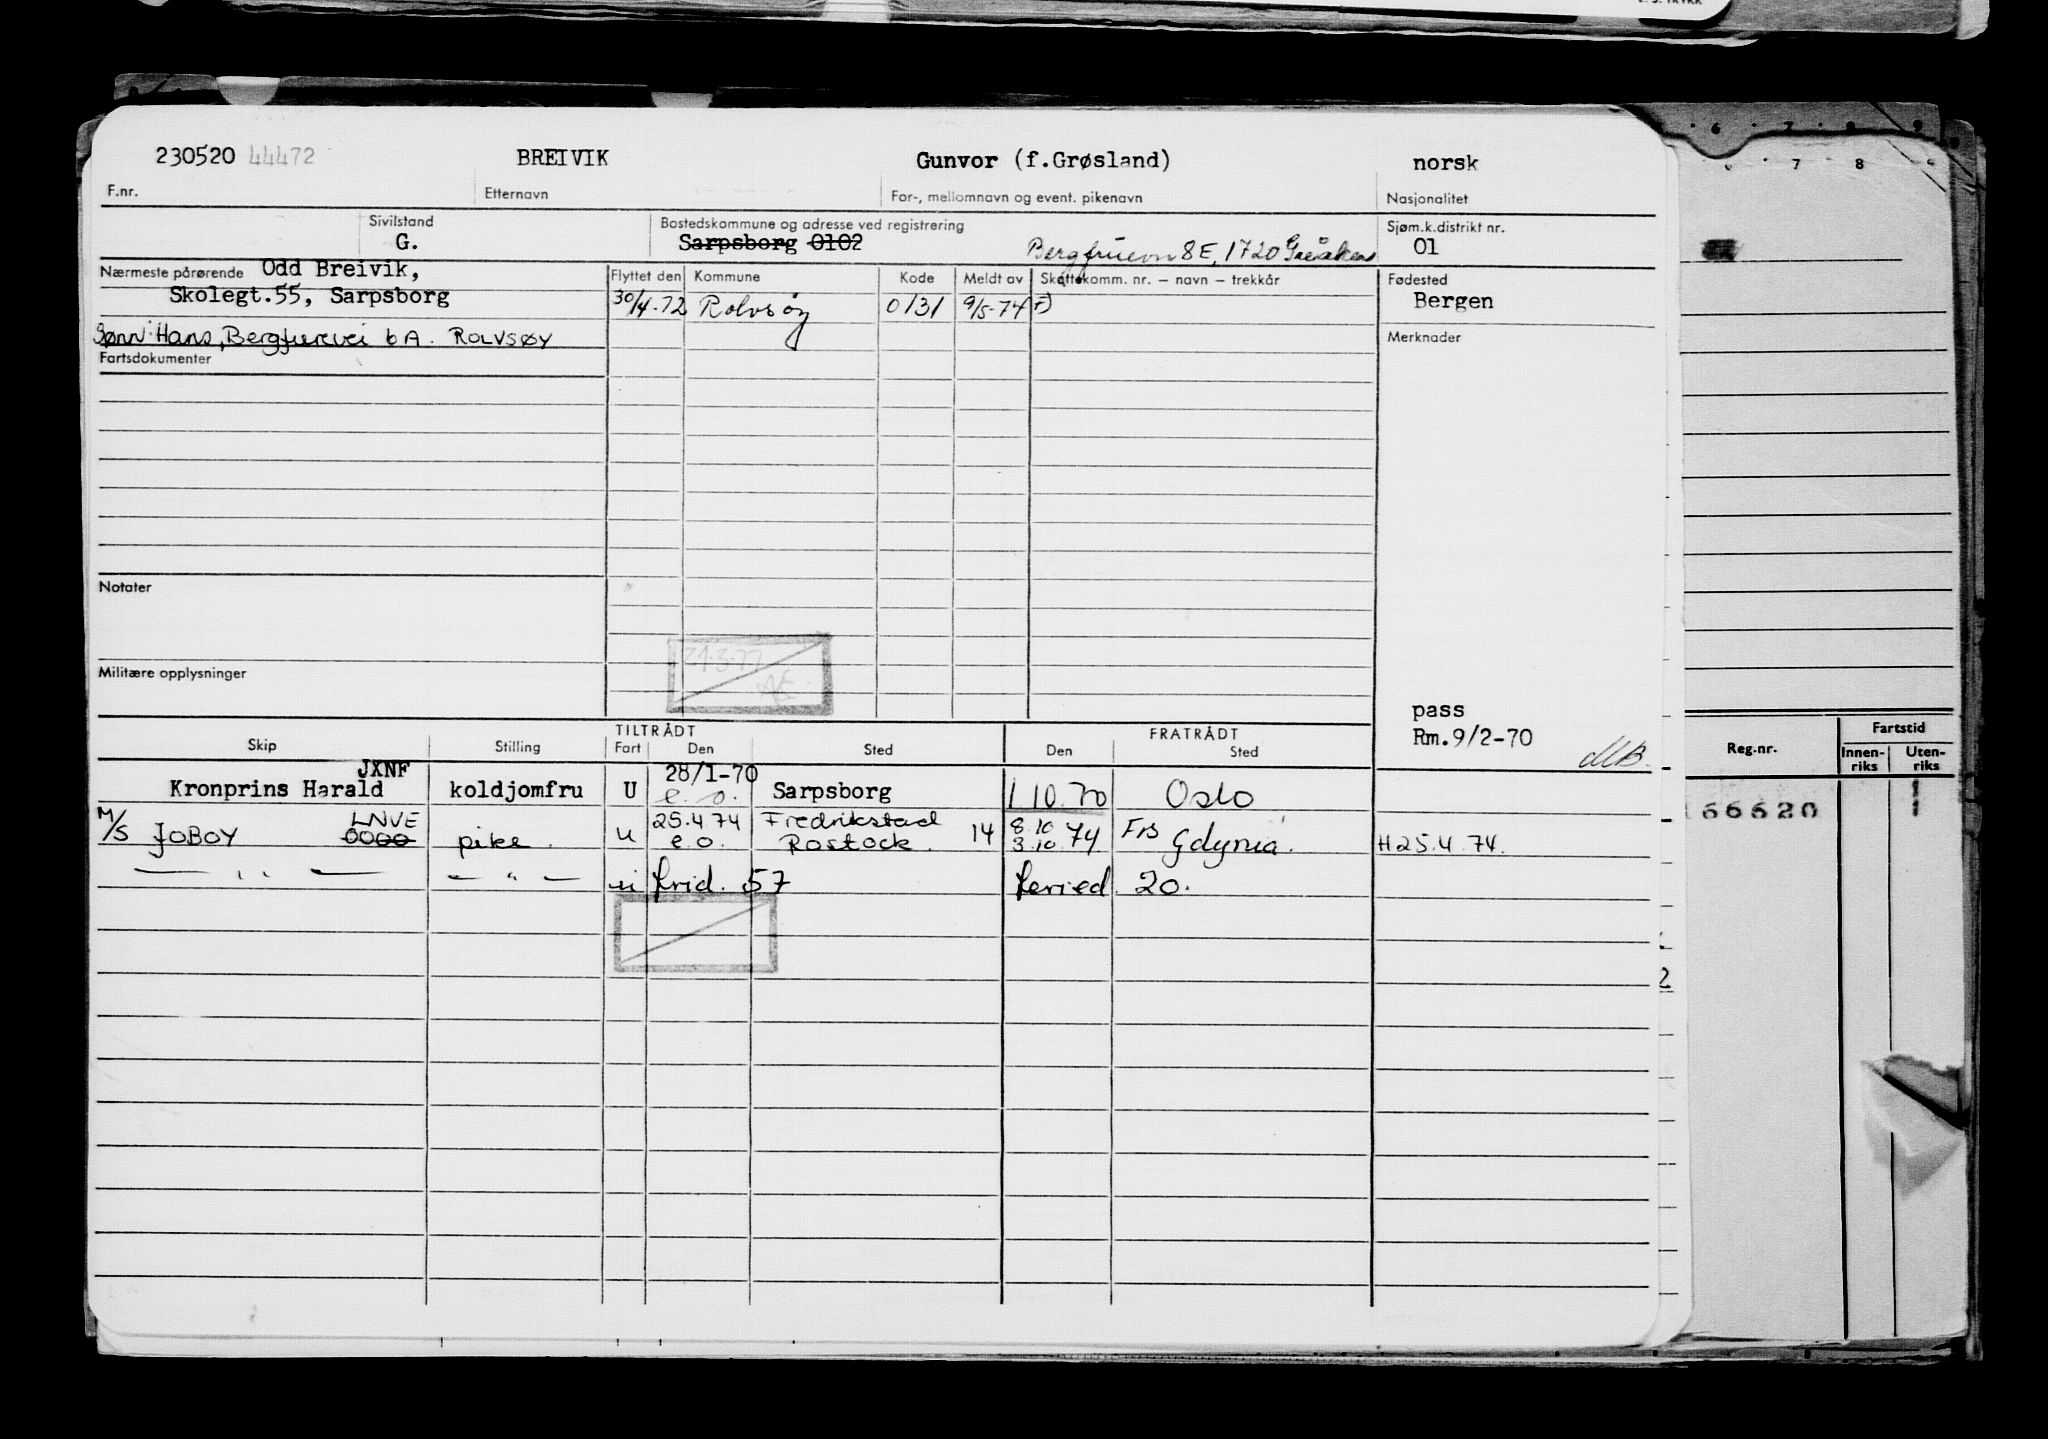 230520 44472 BREIVIK Gunvor (f.Grøsland) norsk
F.nr. Etternavn For-, mellomnavn og event. pikenavn Nasjonalitet
Sivilstand Bostedskommune og adresse ved registrering Sjøm.k.distrikt nr.
G. Sarpsborg 0102 8E, 1720 01
Nærmeste pårørende Odd Breivik, Flyttet den Kommune Kode Meldt av Skattekomm. nr. — navn — trekkår Fødested
Skolegt.55, Sarpsborg 30/4.72 Rolvsøy 0131 9/5-74 Bergen
Sønn: Hans, 6A. ROLVSØY Merknader
Fartsdokumenter
Notater
Militære opplysninger
pass
Rm.9/2-70
TILTRÅDT FRATRÅDT
Skip Stilling Fart Den Sted Den Sted
JXNF 28/1-70
Kronprins Harald koldjomfru U e.o. Sarpsborg 1 10.70 Oslo
M/S JOBOY LNVE 0000 pike. u 25.4 74 Fredrikstad
e.o. Rostock. 14 8.10 3.10 74 FrB Gdynia. H25.4.74.
— " — — " — u frid. 57 feried 20.
6 7 8 9
7 8
Reg.nr. Fartstid
Innen-riks Uten-riks
66620
2